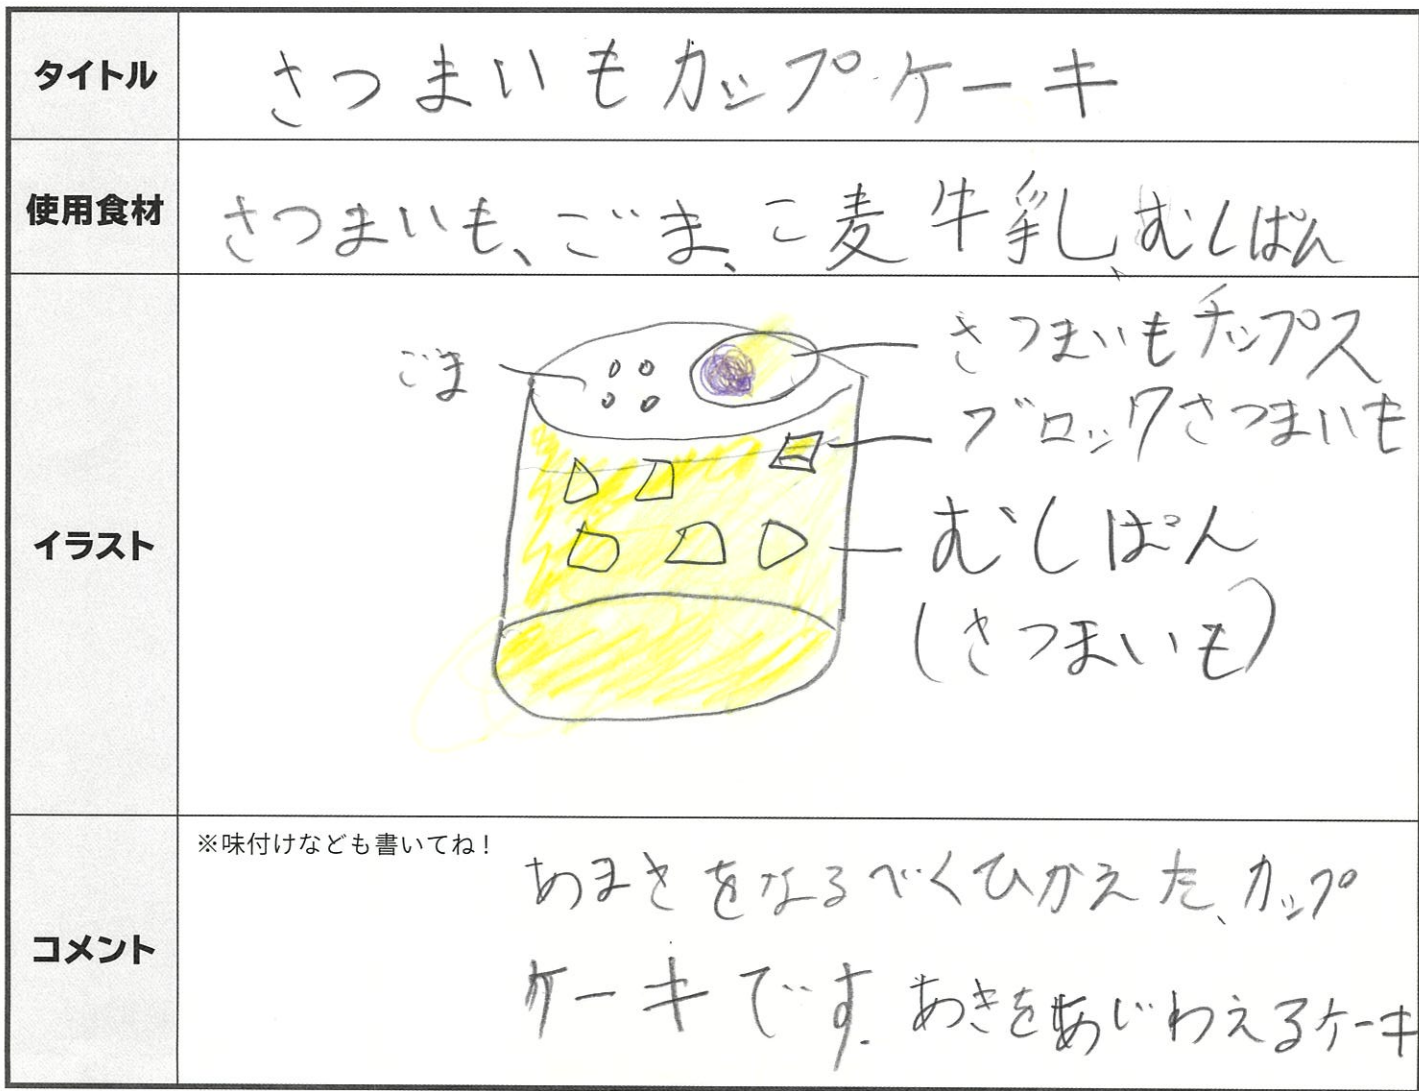 タイトル
さつまいもカップケーキ
使用食材
さつまいも、ごま、こ麦 牛乳、むしぱん
イラスト
ごま
さつまいもチップス
ブロックさつまいも
むしぱん
(さつまいも)
コメント
※味付けなども書いてね!
あまさをなるべくひかえた、カップ
ケーキです. あきをあじわえるケーキ